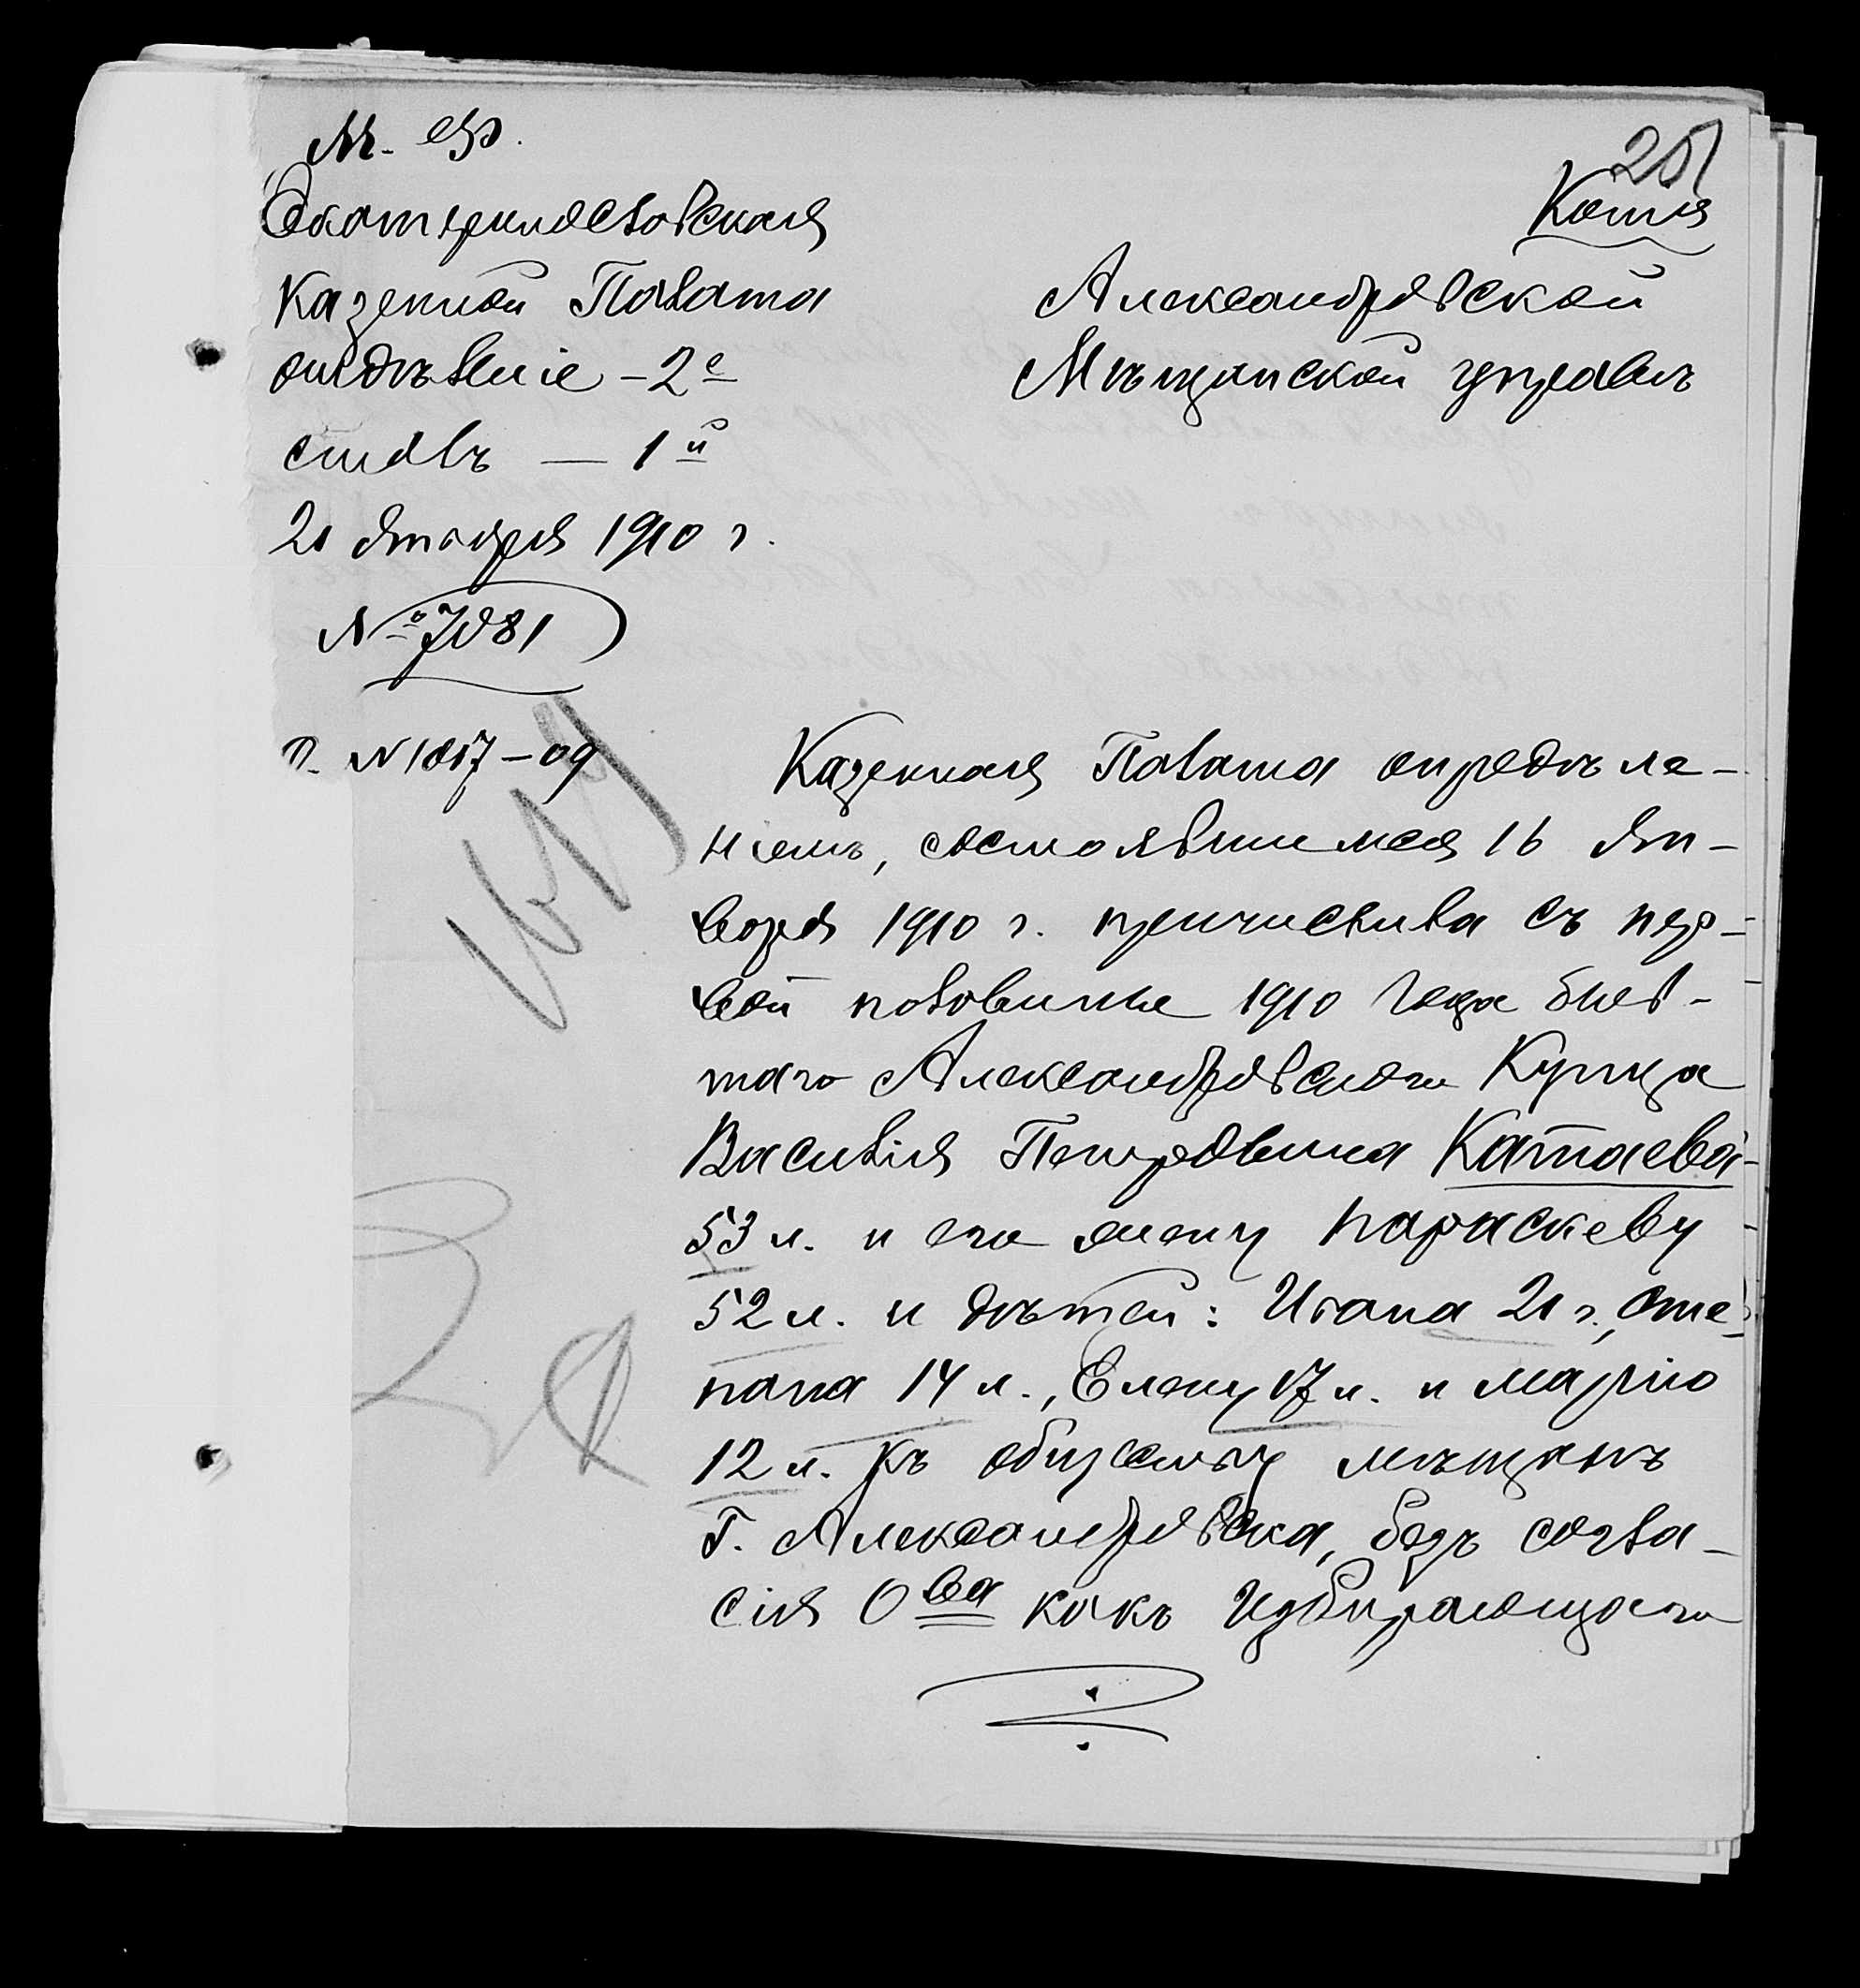 М. Ф.
251
Копія
Екатеринославская
Казенная Палата
отдѣленіе – 2е
столъ — 1й
21 Января 1910 г.
№ 7081
п. № 1817 – 09
Александровской
Мѣщанской управѣ
Казенная Палата опредѣле-
ніемъ, состоявшимся 16 Ян-
варя 1910 г. причислила съ пер-
вой половины 1910 года быв-
шаго Александровскаго Купца
Василія Петровича Катаева
53 л. и его жену Параскеву
52 л. и дѣтей: Ивана 21 г., Сте-
пана 14 л., Елену 17 л. и Марію
12 л. къ обществу мѣщанъ
г. Александровска, безъ согла-
сія О-ва какъ избирающаго